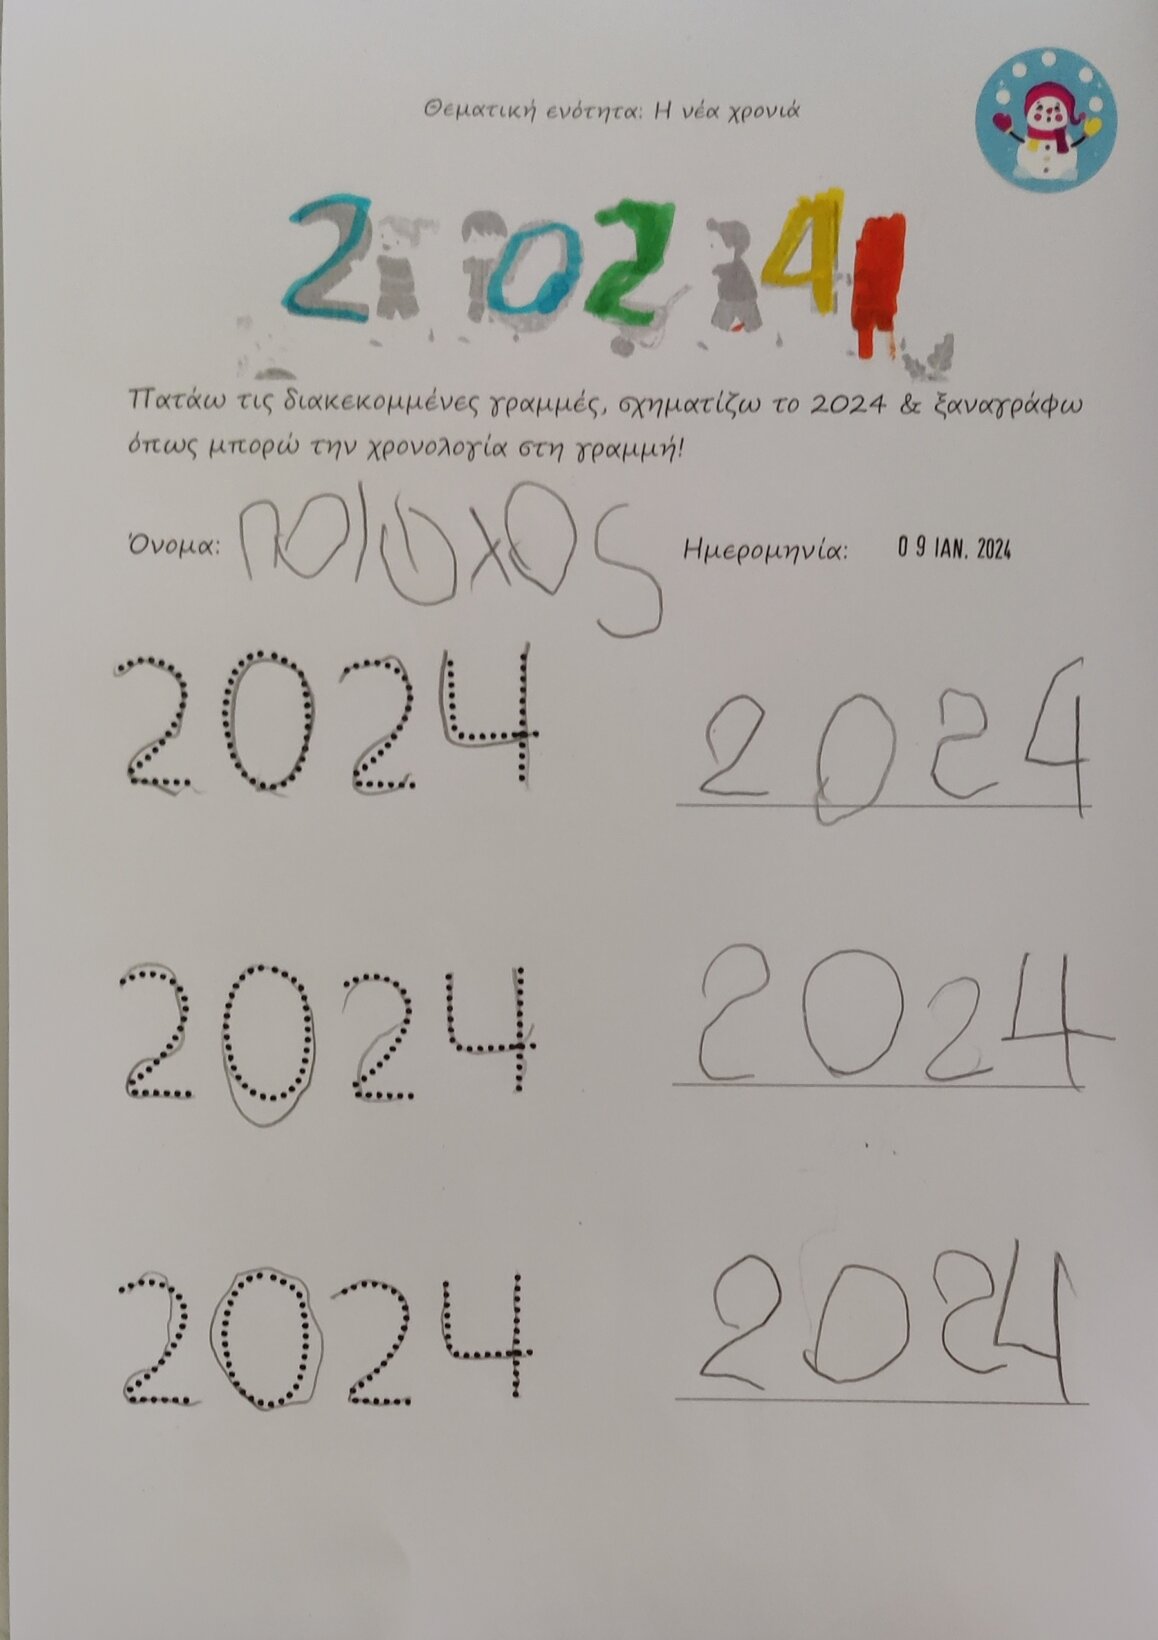 Θεματική ενότητα: Η νέα χρονιά
2024
Πατάω τις διακεκομμένες γραμμές, σχηματίζω το 2024 & ξαναγράφω
όπως μπορώ την χρονολογία στη γραμμή!
Όνομα: Ημερομηνία: 09 ΙΑΝ. 2024
2024 2024
2024 2024
2024 2024